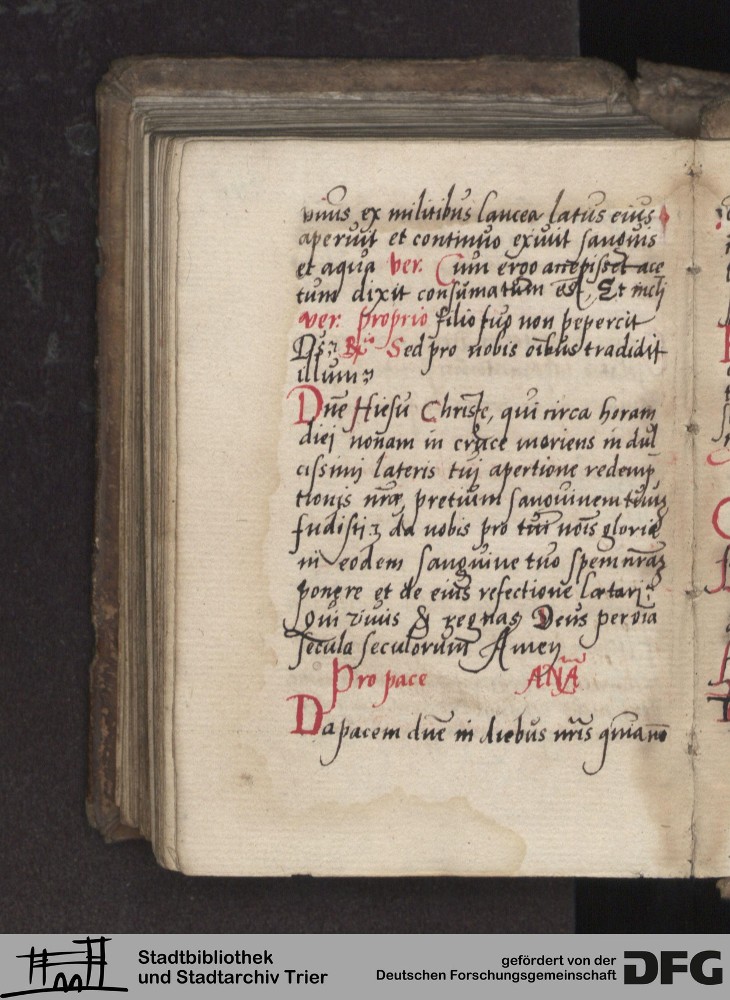 vnus ex militibus lancea latus eius
aperuit et continuo exiuit sanguis
et aqua ver. Cum ergo accepisset ace
tum dixit consumatum est, Et incli
ver. proprio filio suo non pepercit
Ds: R. Sed pro nobis oibus tradidit
illum
Dne Hiesu Christe, qui circa horam
diei nonam in cruce moriens in dul
cissimi lateris tui apertione redemp
tionis nrae pretium sanguinem tuum
fudisti: da nobis pro tui nois gloria
in eodem sanguine tuo spem nram
ponere et de eius refectione laetari:
Qui viuis & regnas Deus per oia
secula seculorum Amen
Pro pace ANA
Da pacem dne in diebus nris quia no
Stadtbibliothek
und Stadtarchiv Trier
gefördert von der
Deutschen Forschungsgemeinschaft
DFG